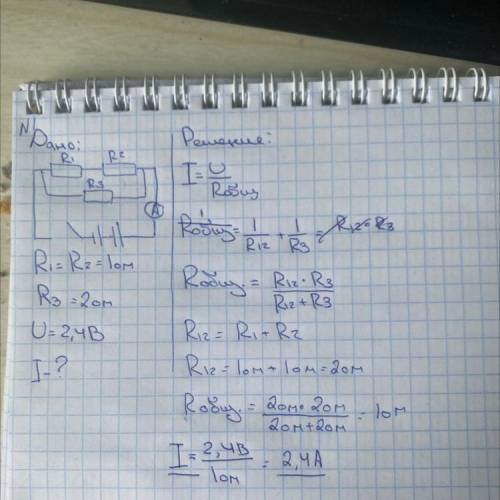 N1
Дано:
R1 R2
R3
A
R1 = R2 = 1 Ом
R3 = 2 Ом
U = 2,4 В
I - ?
Решение:
I = U / Rобщ
1 / Rобщ = 1 / R12 + 1 / R3 = R12 · R3
Rобщ. = R12 · R3 / R12 + R3
R12 = R1 + R2
R12 = 1 Ом + 1 Ом = 2 Ом
Rобщ. = 2 Ом · 2 Ом / 2 Ом + 2 Ом = 1 Ом
I = 2,4 В / 1 Ом = 2,4 А